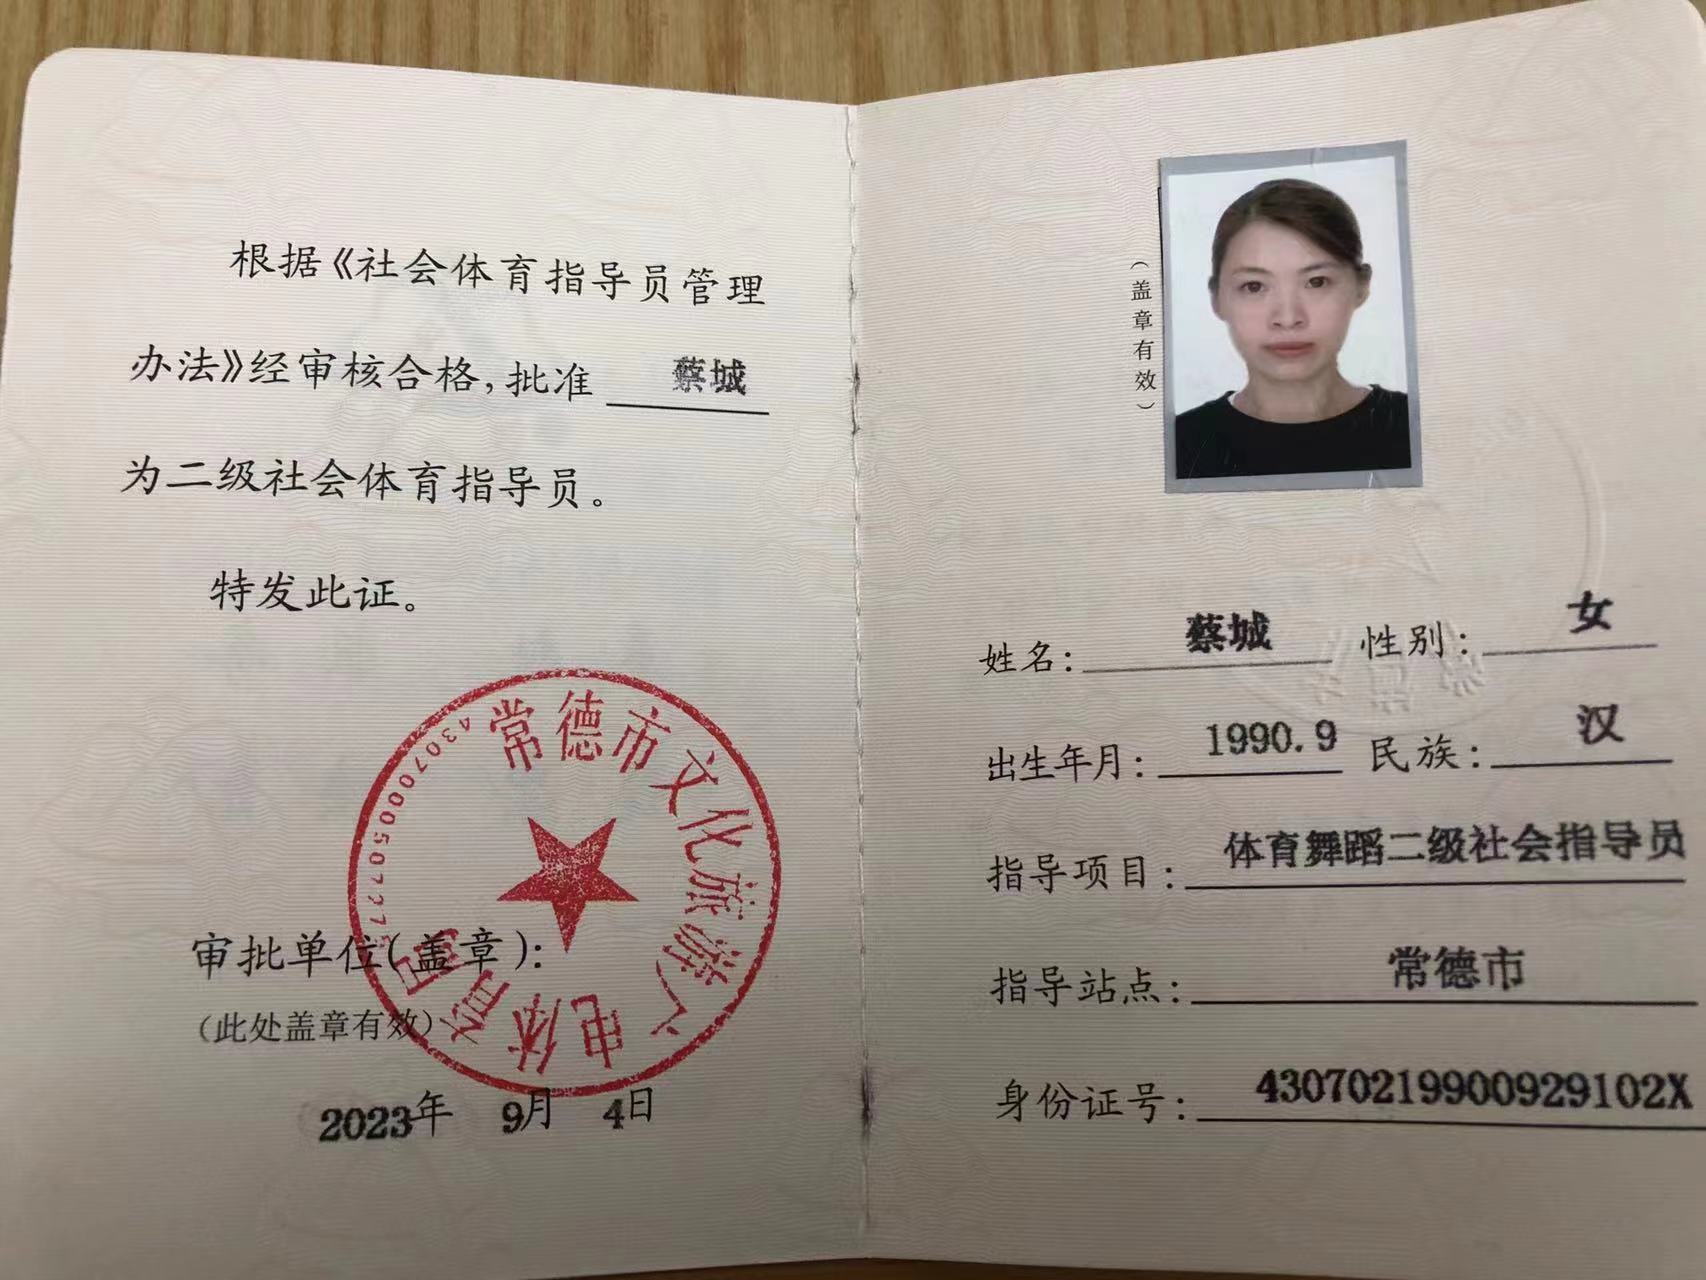 根据《社会体育指导员管理
办法》经审核合格，批准 蔡城
为二级社会体育指导员。
特发此证。
审批单位（盖章）：
（此处盖章有效）
2023年 9月 4日
常德市文化旅游广电体育局
（盖章有效）
姓名： 蔡城 性别： 女
出生年月： 1990.9 民族： 汉
指导项目： 体育舞蹈二级社会指导员
指导站点： 常德市
身份证号： 43070219900929102X